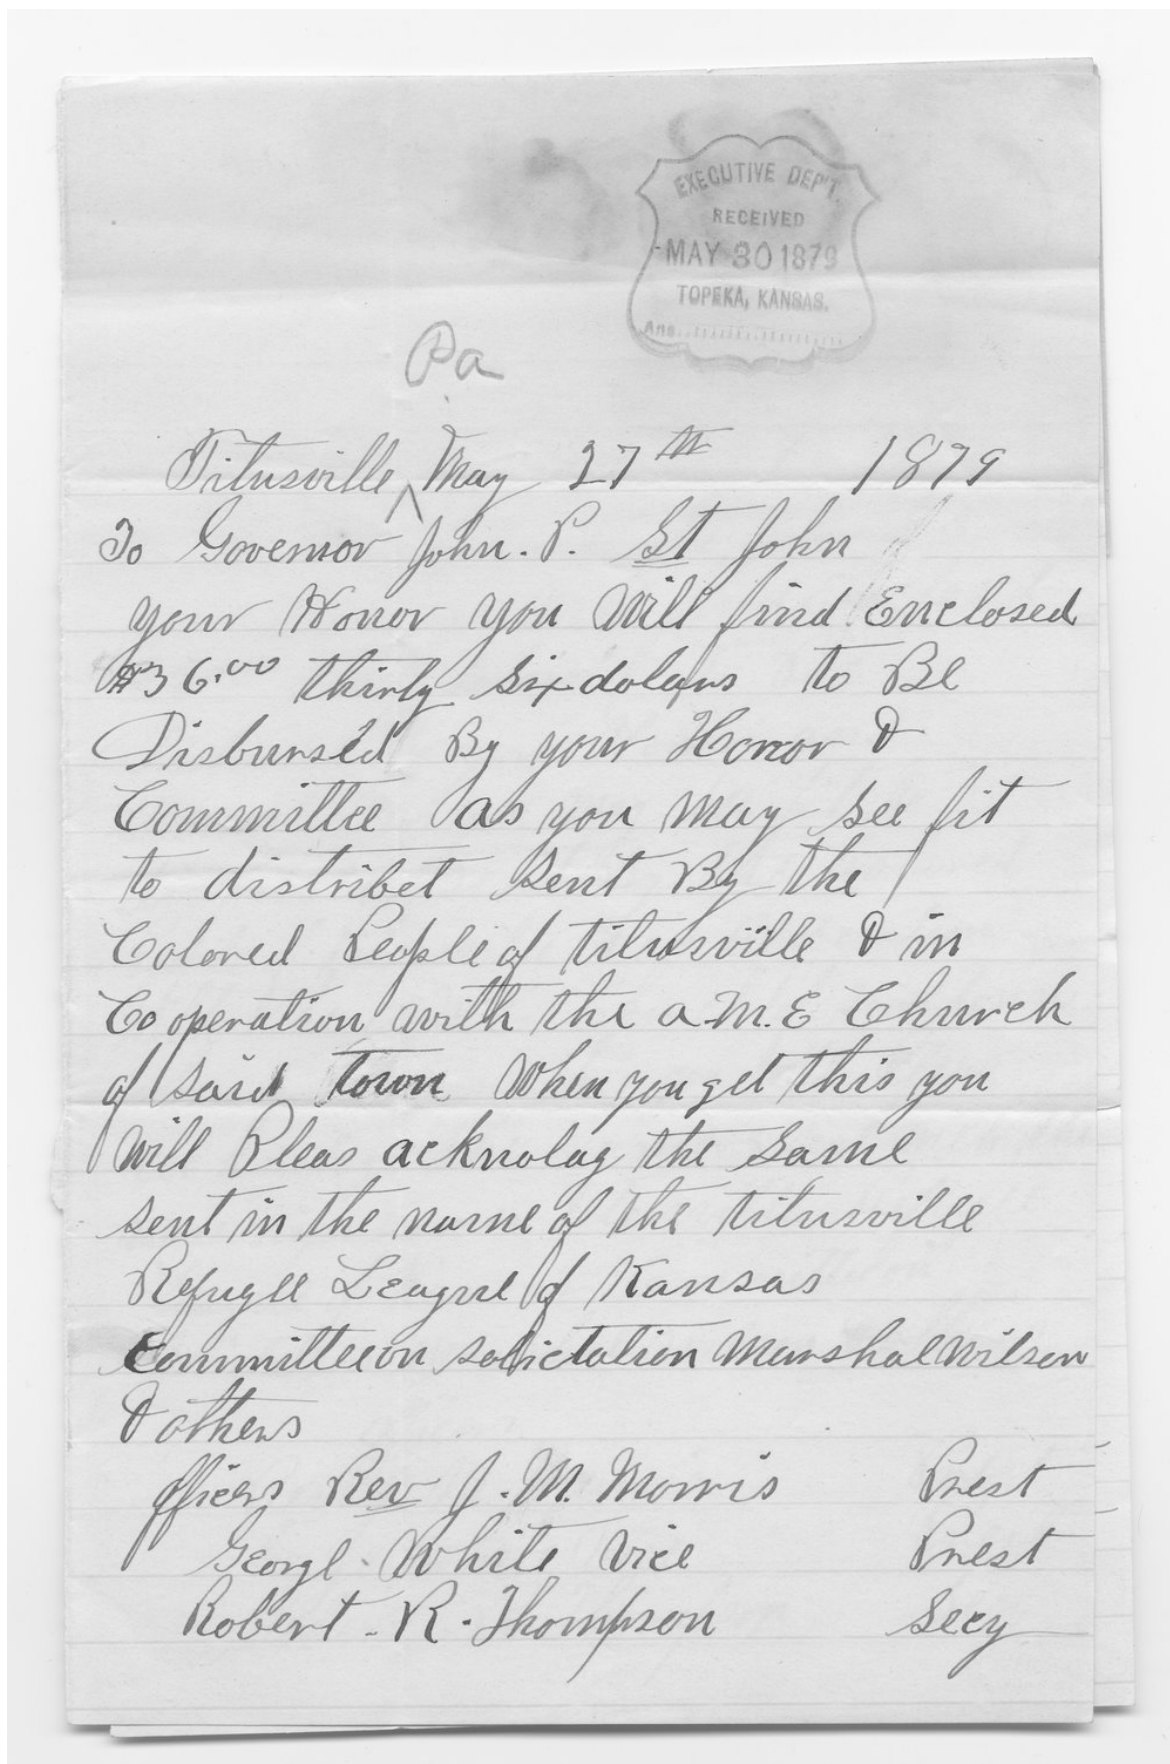 EXECUTIVE DEP'T.
RECEIVED
MAY 30 1879
TOPEKA, KANSAS.
Ans.
Pa
Titusville May 27th 1879
To Governor John. P. St John
your Honor you Will find Enclosed
$36.00 thirty six dolars to Be
Disbursed By your Honor &
Committee as you may see fit
to distribet sent By the
Colored People of titusville & in
Cooperation with the a.M.E Church
of said town When you get this you
Will Pleas acknolag the same
sent in the name of the titusville
Refugee League of Kansas
Committee on solictation Marshal Wilson
& others
officers Rev J. M. Morris Prest
George White Vice Prest
Robert. R. Thompson Secy